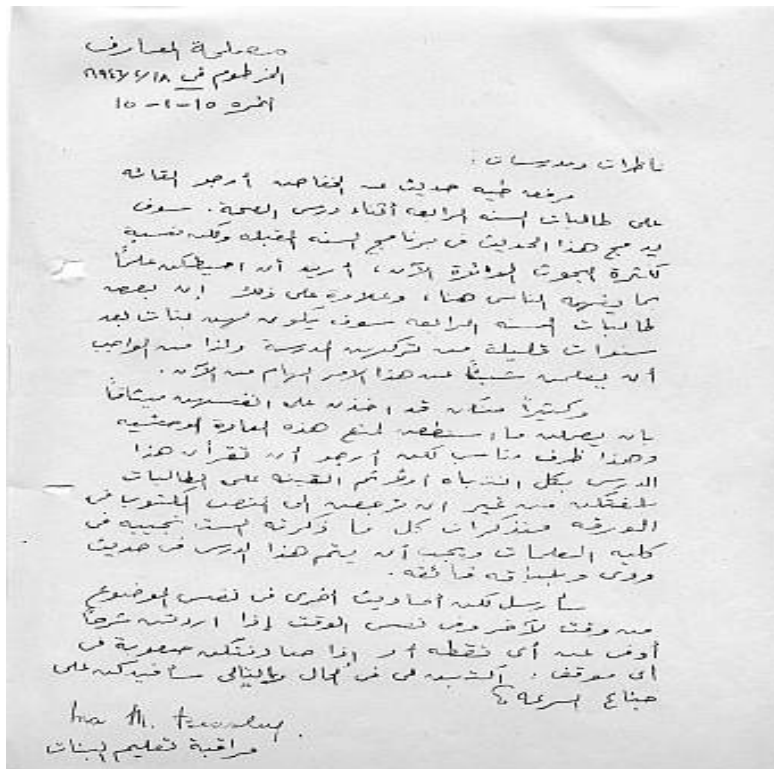 مصلحة المعارف
الخرطوم في ١٨/٤/١٩٤٦
نمره ١٥-١-١٥
ناظرات ومدرسات :
مرفق طيه حديث عن الخفاض أرجو القائه
على طالبات السنه الرابعه أثناء درس الصحة. سوف
يدمج هذا الحديث فى برنامج السنه المقبله ولكن نسبة
لكثرة البحوث الدائرة الآن، أريد أن احيطكن علماً
بما يفهمه الناس هنا، وعلاوة على ذلك ان بعض
طالبات السنه الرابعه سوف يكون لهن بنات بعد
سنوات قليلة من تركهن المدرسة ولذا من الواجب
أن يعلمن شيئاً عن هذا الامر الهام من الآن.
وكثيراً منكن قد اخذن على انفسهن ميثاقاً
بان يعملن ما استطعن لمنع هذه العادة الوحشيه
وهذا ظرف مناسب لكن أرجو أن تقرأن هذا
الدرس بكل انتباه أولاً ثم القينه على الطالبات
بلغتكن من غير ان ترجعن الى النص المكتوب فى
الورقه متذكرات كل ما ذكرته الست نجيبه فى
كليه المعلمات ويجب أن يتم هذا الدرس فى حديث
ودى وبلباقه فائقه.
سأرسل لكن أحاديث أخرى فى نفس الموضوع
من وقت لآخر وفى نفس الوقت إذا اردتن شرحاً
أوفى عن أى نقطه أو إذا صادفتكن صعوبة فى
أى موقف، اكتبن لى فى الحال وبالتالى سأفيدكن على
جناح السرعة
مراقبة تعليم البنات